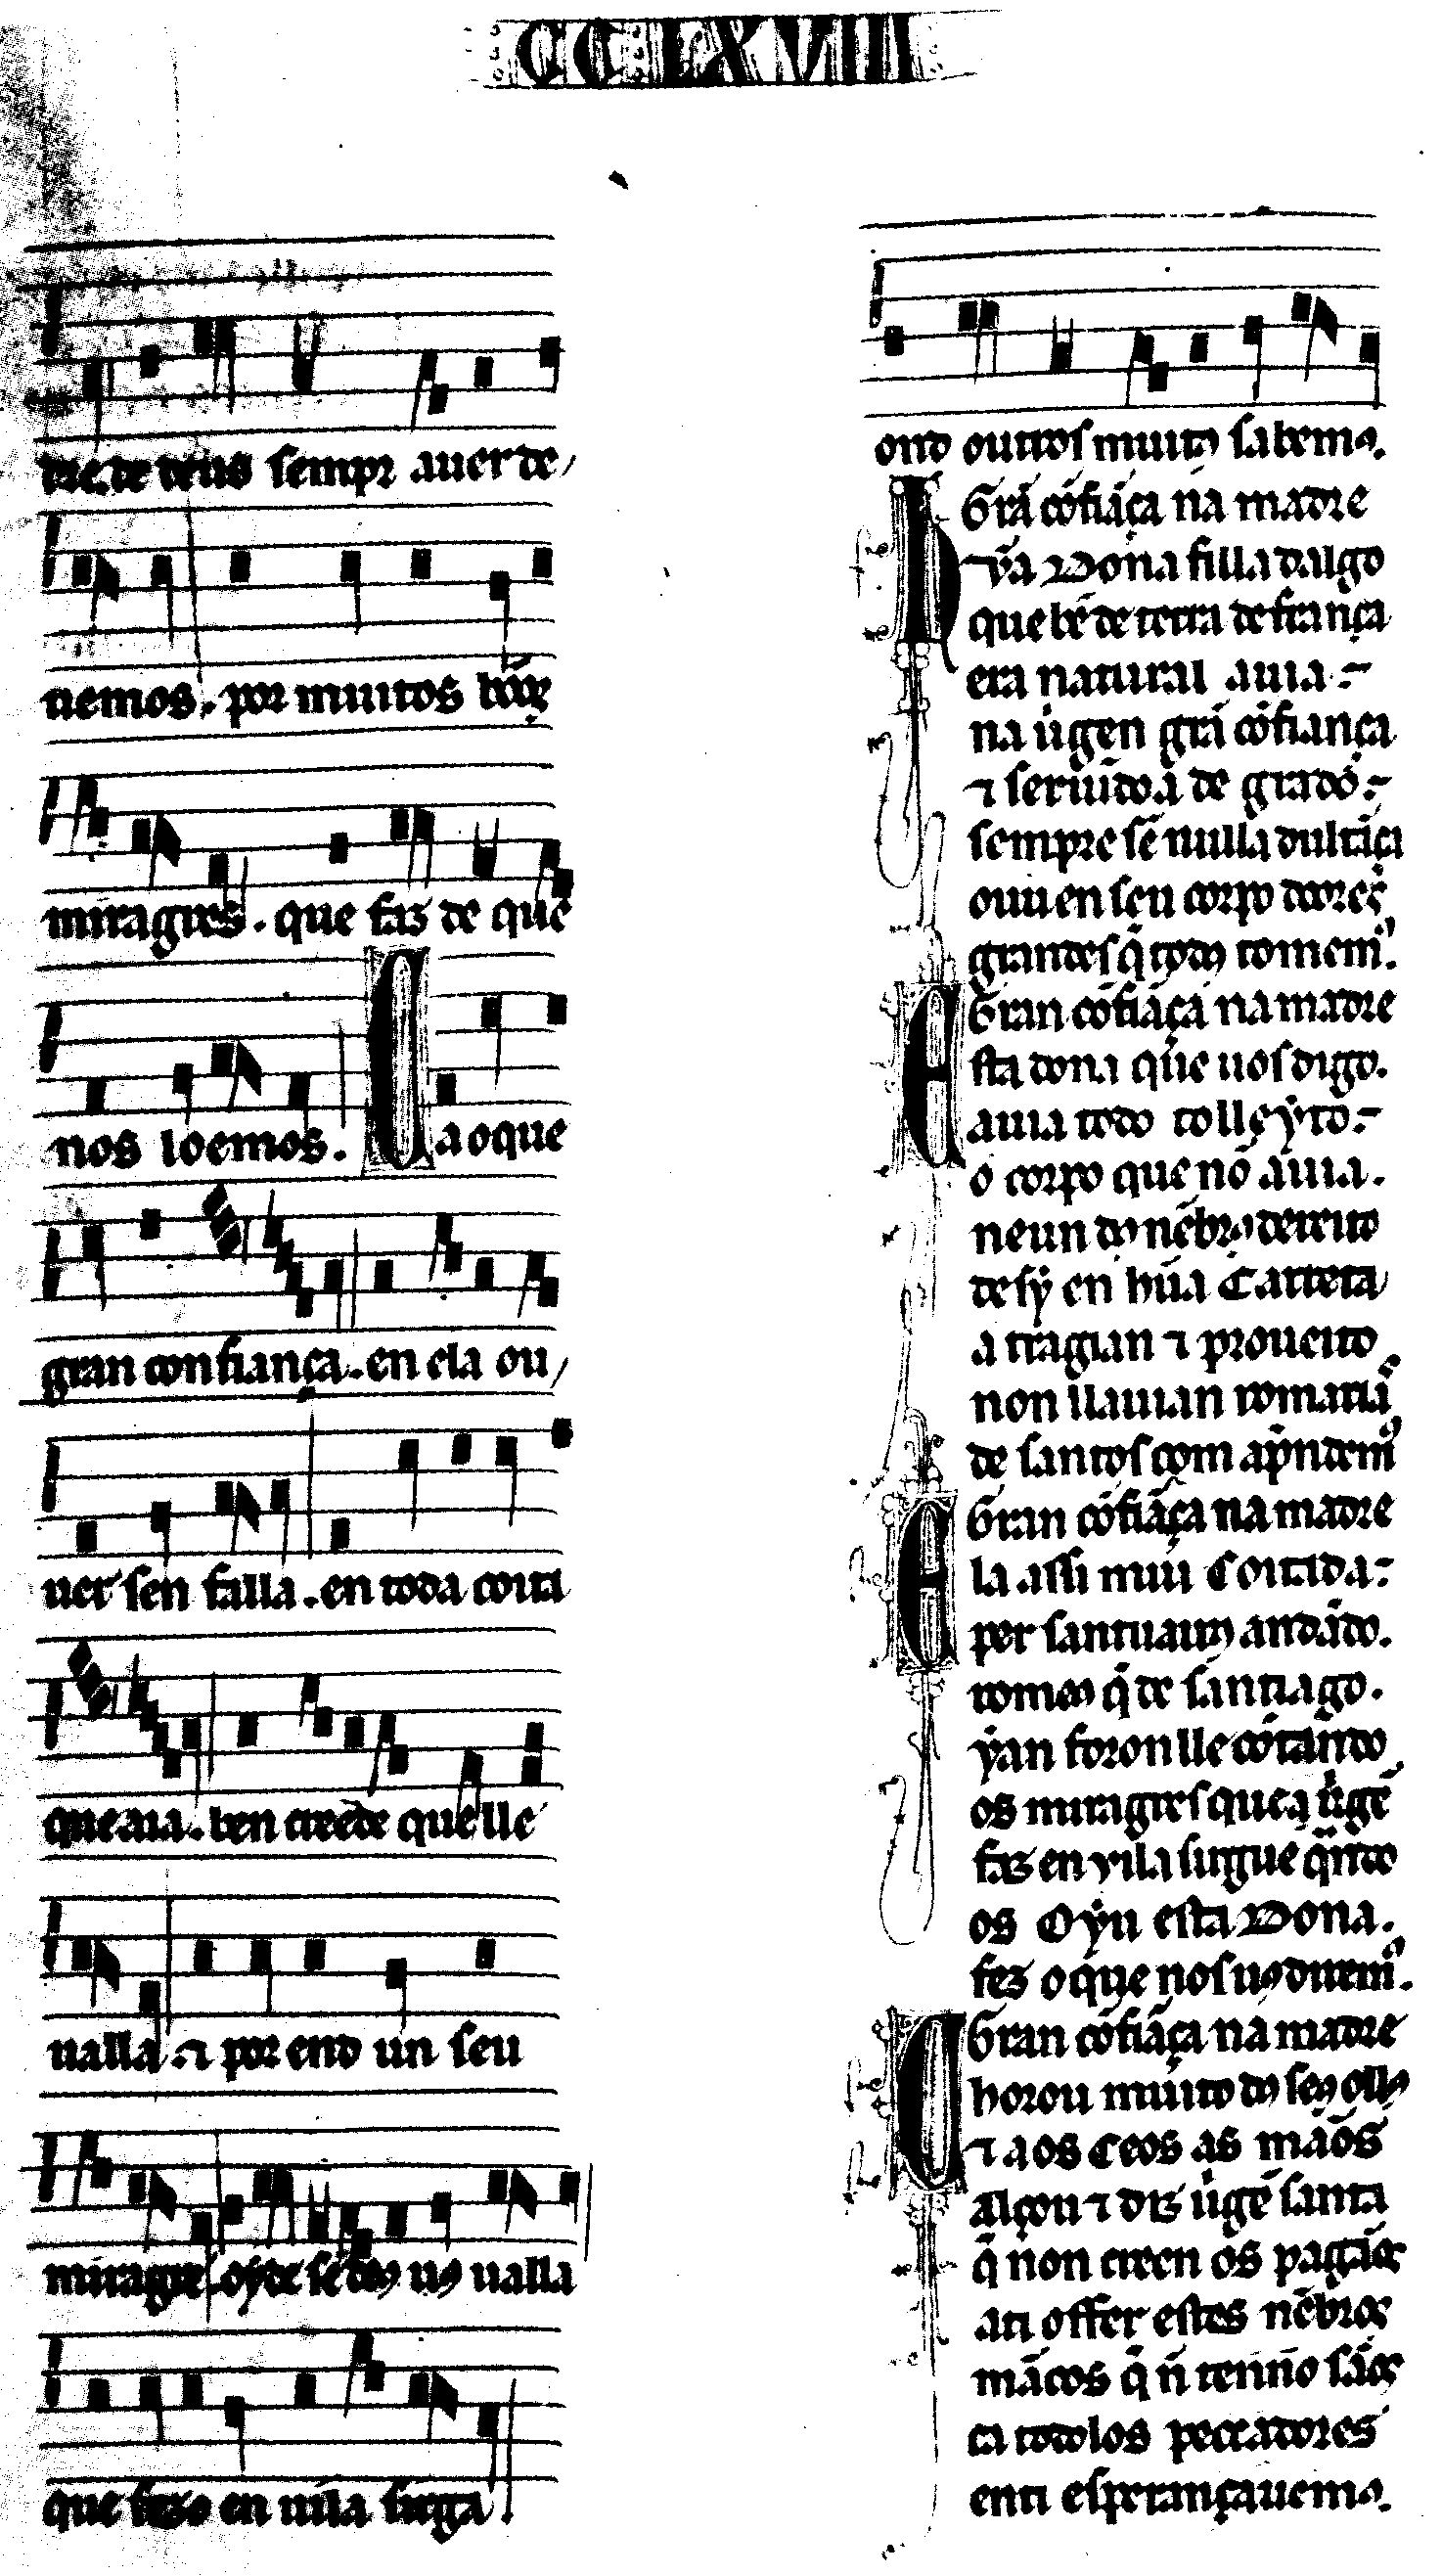 CCLXVIII
dre de deus sempr auer de/
uemos . por muitos
miragres . que faz de que
nos loemos . Ca o que
gran confiança . en ela ou/
uer sen falla . en toda coita
que aia . ben creede que lle
ualla . ⁊ por end un seu
miragre . oyde se d's us ualla
que fezo en uila sirga .
ond outros muitos sabemos.
Grã cõfiãça na madre
Vῆa Dona filla dalgo
que bẽ de terra de frança
era natural auia :~
na uirgen grã cõfiança
⁊ seruida de grado :~
sempre sẽ nulla dultãça
ouu en seu corpo doores
grandes q̃ todos tomem9.
Gran cõfiãça na madre
Esta dona que uos digo.
auia todo tolleyto :~
o corpo que nõ auia .
neun dos nẽbros dereito
de sy en hũa Carreta
a tragian ⁊ proueito
non ll auian romarias
de santos com ap̃ndem9
Gran cõfiãça na madre
Ela assi mui Coitada :~
per santuarios andãdo.
romeos q̃ de santiago .
yan foron lle cõtando
os miragres que a uirgẽ
faz en vila sirgue q̃ndo
os Oyu esta Dona .
fez o que nos us diremos.
Gran cõfiãça na madre
Chorou muito dos seos ollos
⁊ aos Ceos as mãos
alçou ⁊ diz uirgẽ santa
q̃ non creen os pagãos
a ti offer estes nẽbros
mãcos q̃ ñ tenno sãos
ca todolos peccadores
en ti esperança uemos.